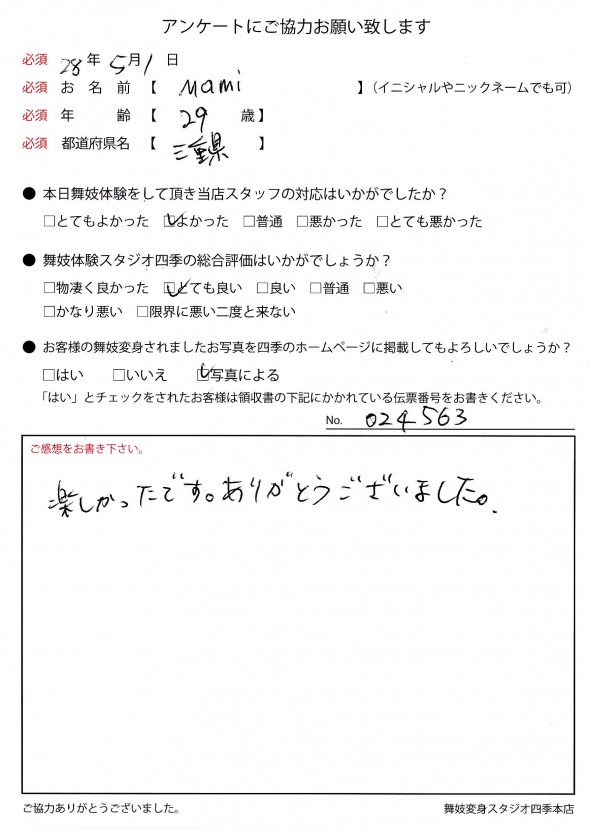 アンケートにご協力お願い致します
必須 28年 5月1日
必須 お名前【 Mami 】(イニシャルやニックネームでも可)
必須 年齢【 29 歳】
必須 都道府県名【 三重県 】
● 本日舞妓体験をして頂き当店スタッフの対応はいかがでしたか?
□とてもよかった ☑よかった □普通 □悪かった □とても悪かった
● 舞妓体験スタジオ四季の総合評価はいかがでしょうか?
□物凄く良かった ☑とても良い □良い □普通 □悪い
□かなり悪い □限界に悪い二度と来ない
● お客様の舞妓変身されましたお写真を四季のホームページに掲載してもよろしいでしょうか?
□はい □いいえ ☑写真による
「はい」とチェックをされたお客様は領収書の下記にかかれている伝票番号をお書きください。
No. 024563
ご感想をお書き下さい。
楽しかったです。ありがとうございました。
ご協力ありがとうございました。 舞妓変身スタジオ四季本店